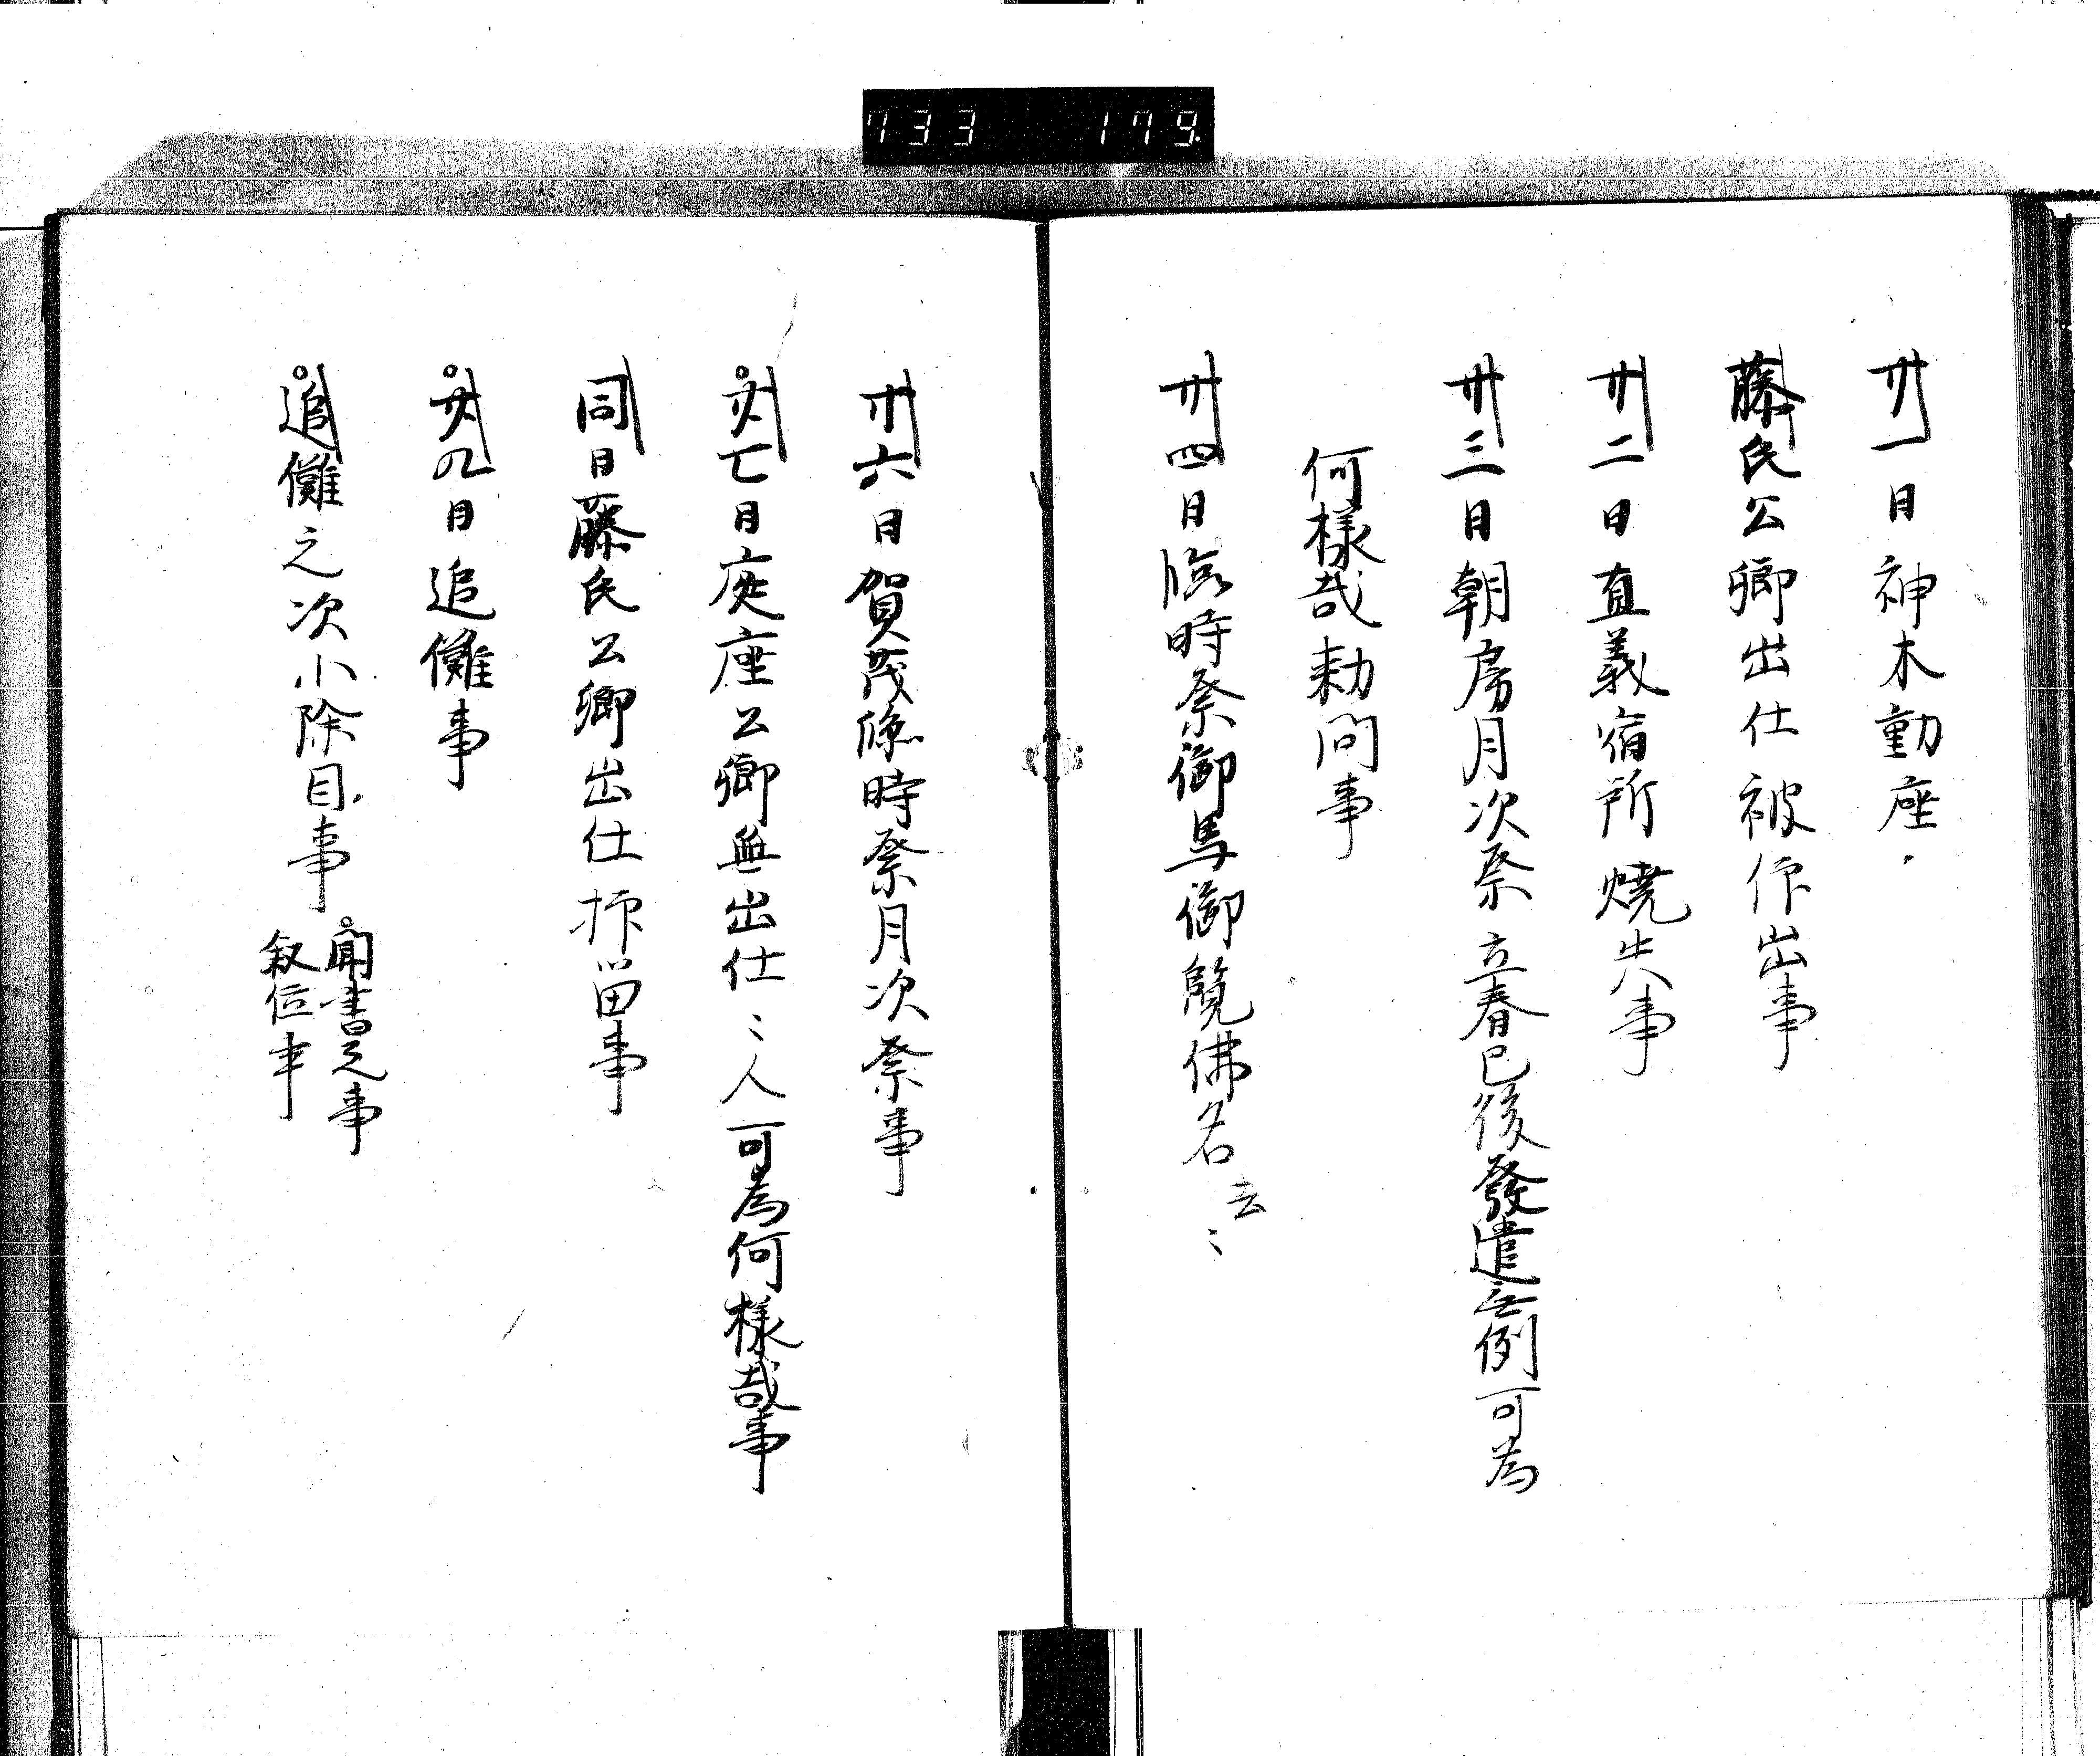 733 179
廿一日神木動座
藤氏公卿出仕被仰出事
廿二日直義宿所燒失事
廿三日朝房月次祭立春已後發遣之例可為
何樣哉勅問事
廿四日臨時祭御馬御覽佛名云〻
廿六日賀茂臨時祭月次祭事
廿七日庭座公卿無出仕〻人可為何樣哉事
同日藤氏公卿出仕抑留事
廿九日追儺事
追儺之次小除目事
聞書之事
叙位事